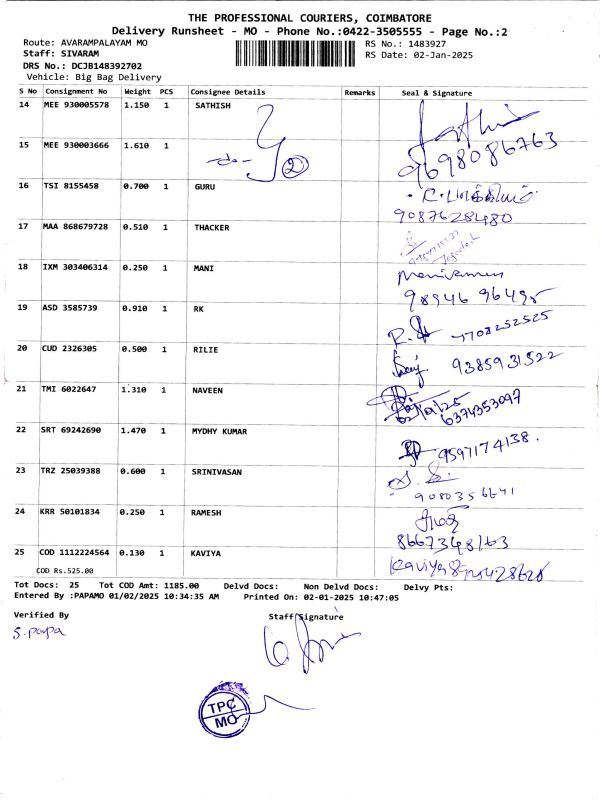 THE PROFESSIONAL COURIERS, COIMBATORE
Delivery Runsheet - MO - Phone No.:0422-3505555 - Page No.:2
Route: AVARAMPALAYAM MO RS No.: 1483927
Staff: SIVARAM RS Date: 02-Jan-2025
DRS No.: DCJB148392702
Vehicle: Big Bag Delivery
S No Consignment No Weight PCS Consignee Details Remarks Seal & Signature
14 MEE 930005578 1.150 1 SATHISH
15 MEE 930003666 1.610 1 2 9698086763
16 TSI 8155458 0.700 1 GURU
9087628480
17 MAA 868679728 0.510 1 THACKER
18 IXM 303406314 0.250 1 MANI Manivannan
98946 96495
19 ASD 3585739 0.910 1 RK 7708252525
20 CUD 2326305 0.500 1 RILIE 9385931522
21 TMI 6022647 1.310 1 NAVEEN
6374353097
22 SRT 69242690 1.470 1 MYDHY KUMAR 9597174138.
23 TRZ 25039388 0.600 1 SRINIVASAN
9080356641
24 KRR 50101834 0.250 1 RAMESH
8667348163
25 COD 1112224564 0.130 1 KAVIYA Kaviya
COD Rs.525.00
Tot Docs: 25 Tot COD Amt: 1185.00 Delvd Docs: Non Delvd Docs: Delvy Pts:
Entered By :PAPAMO 01/02/2025 10:34:35 AM Printed On: 02-01-2025 10:47:05
Verified By Staff Signature
S. papa
TPC
MO